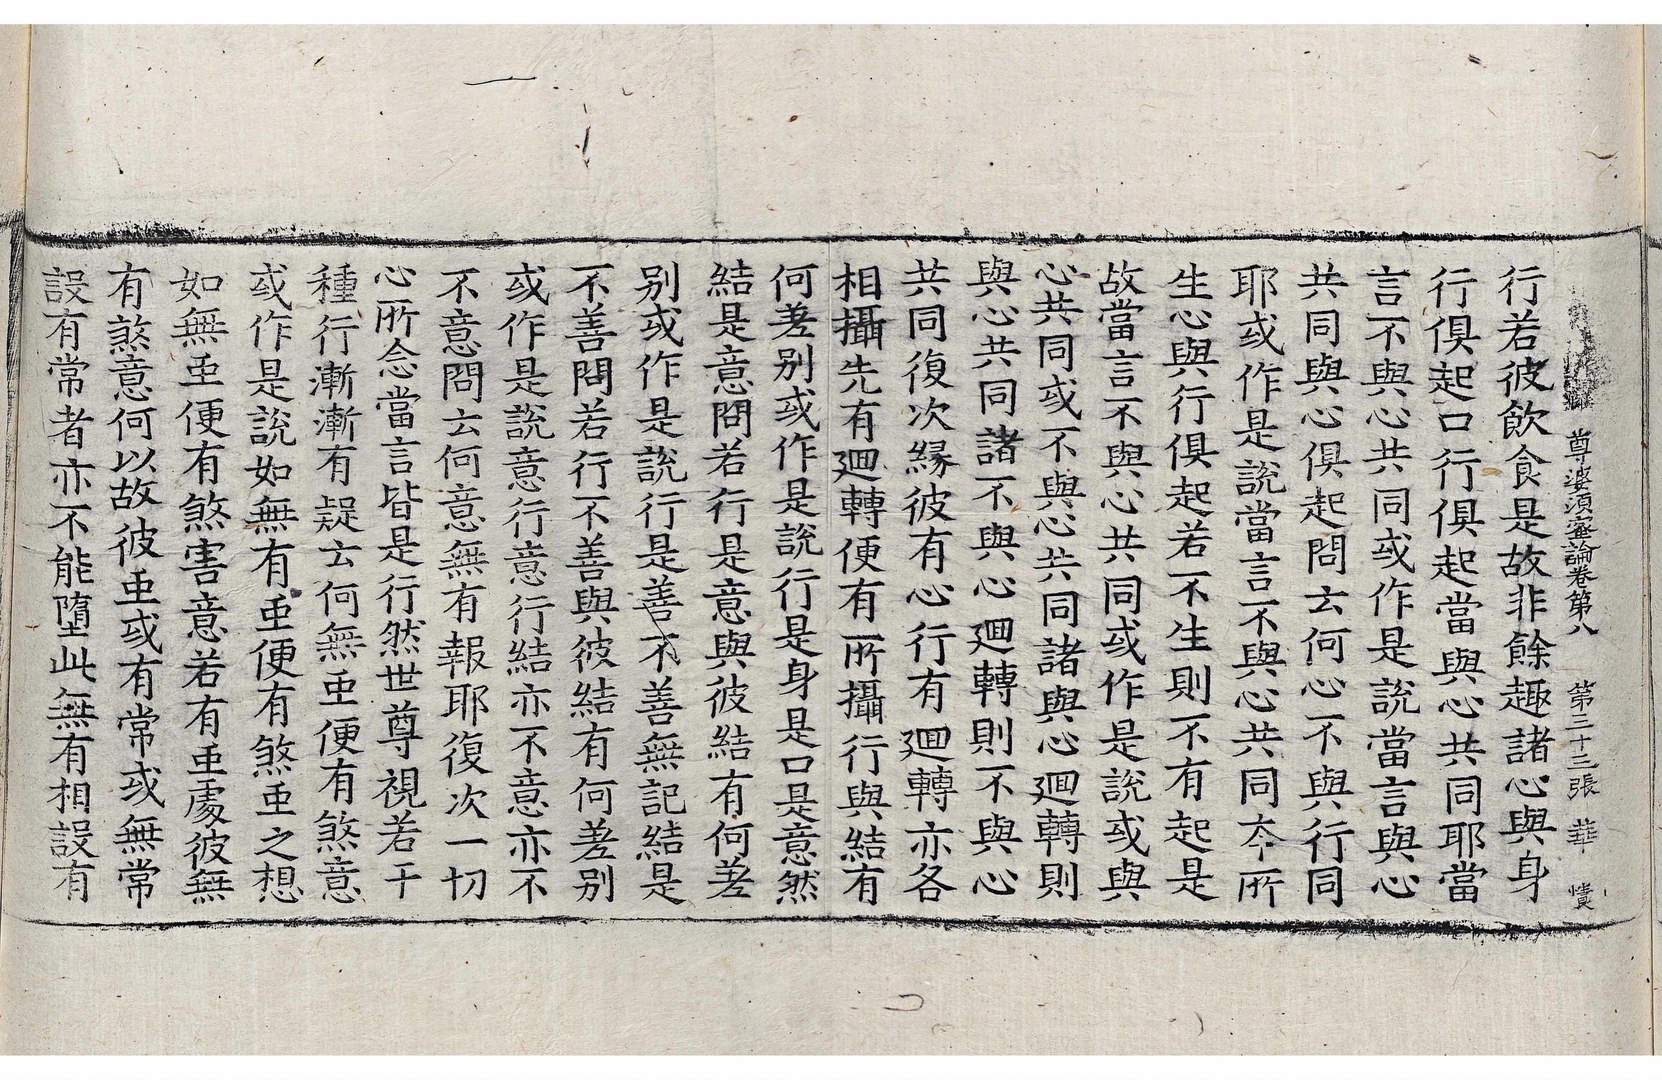 尊婆須蜜論卷第八 第三十三張 華 憒
行若彼飲食是故非餘趣諸心與身
行俱起口行俱起當與心共同耶當
言不與心共同或作是說當言與心
共同與心俱起問云何心不與行同
耶或作是說當言不與心共同夲所
生心與行俱起若不生則不有起是
故當言不與心共同或作是說或與
心共同或不與心共同諸與心廻轉則
與心共同諸不與心廻轉則不與心
共同復次緣彼有心行有廻轉亦各
相攝先有廻轉便有所攝行與結有
何差别或作是說行是身是口是意然
結是意問若行是意與彼結有何差
别或作是說行是善不善無記結是
不善問若行不善與彼結有何差别
或作是說意行意行結亦不意亦不
不意問云何意無有報耶復次一切
心所念當言皆是行然世尊視若干
種行漸漸有疑云何無𠄷便有煞意
或作是說如無有𠄷便有煞𠄷之想
如無𠄷便有煞害意若有𠄷處彼無
有煞意何以故彼𠄷或有常或無常
設有常者亦不能墮此無有相設有